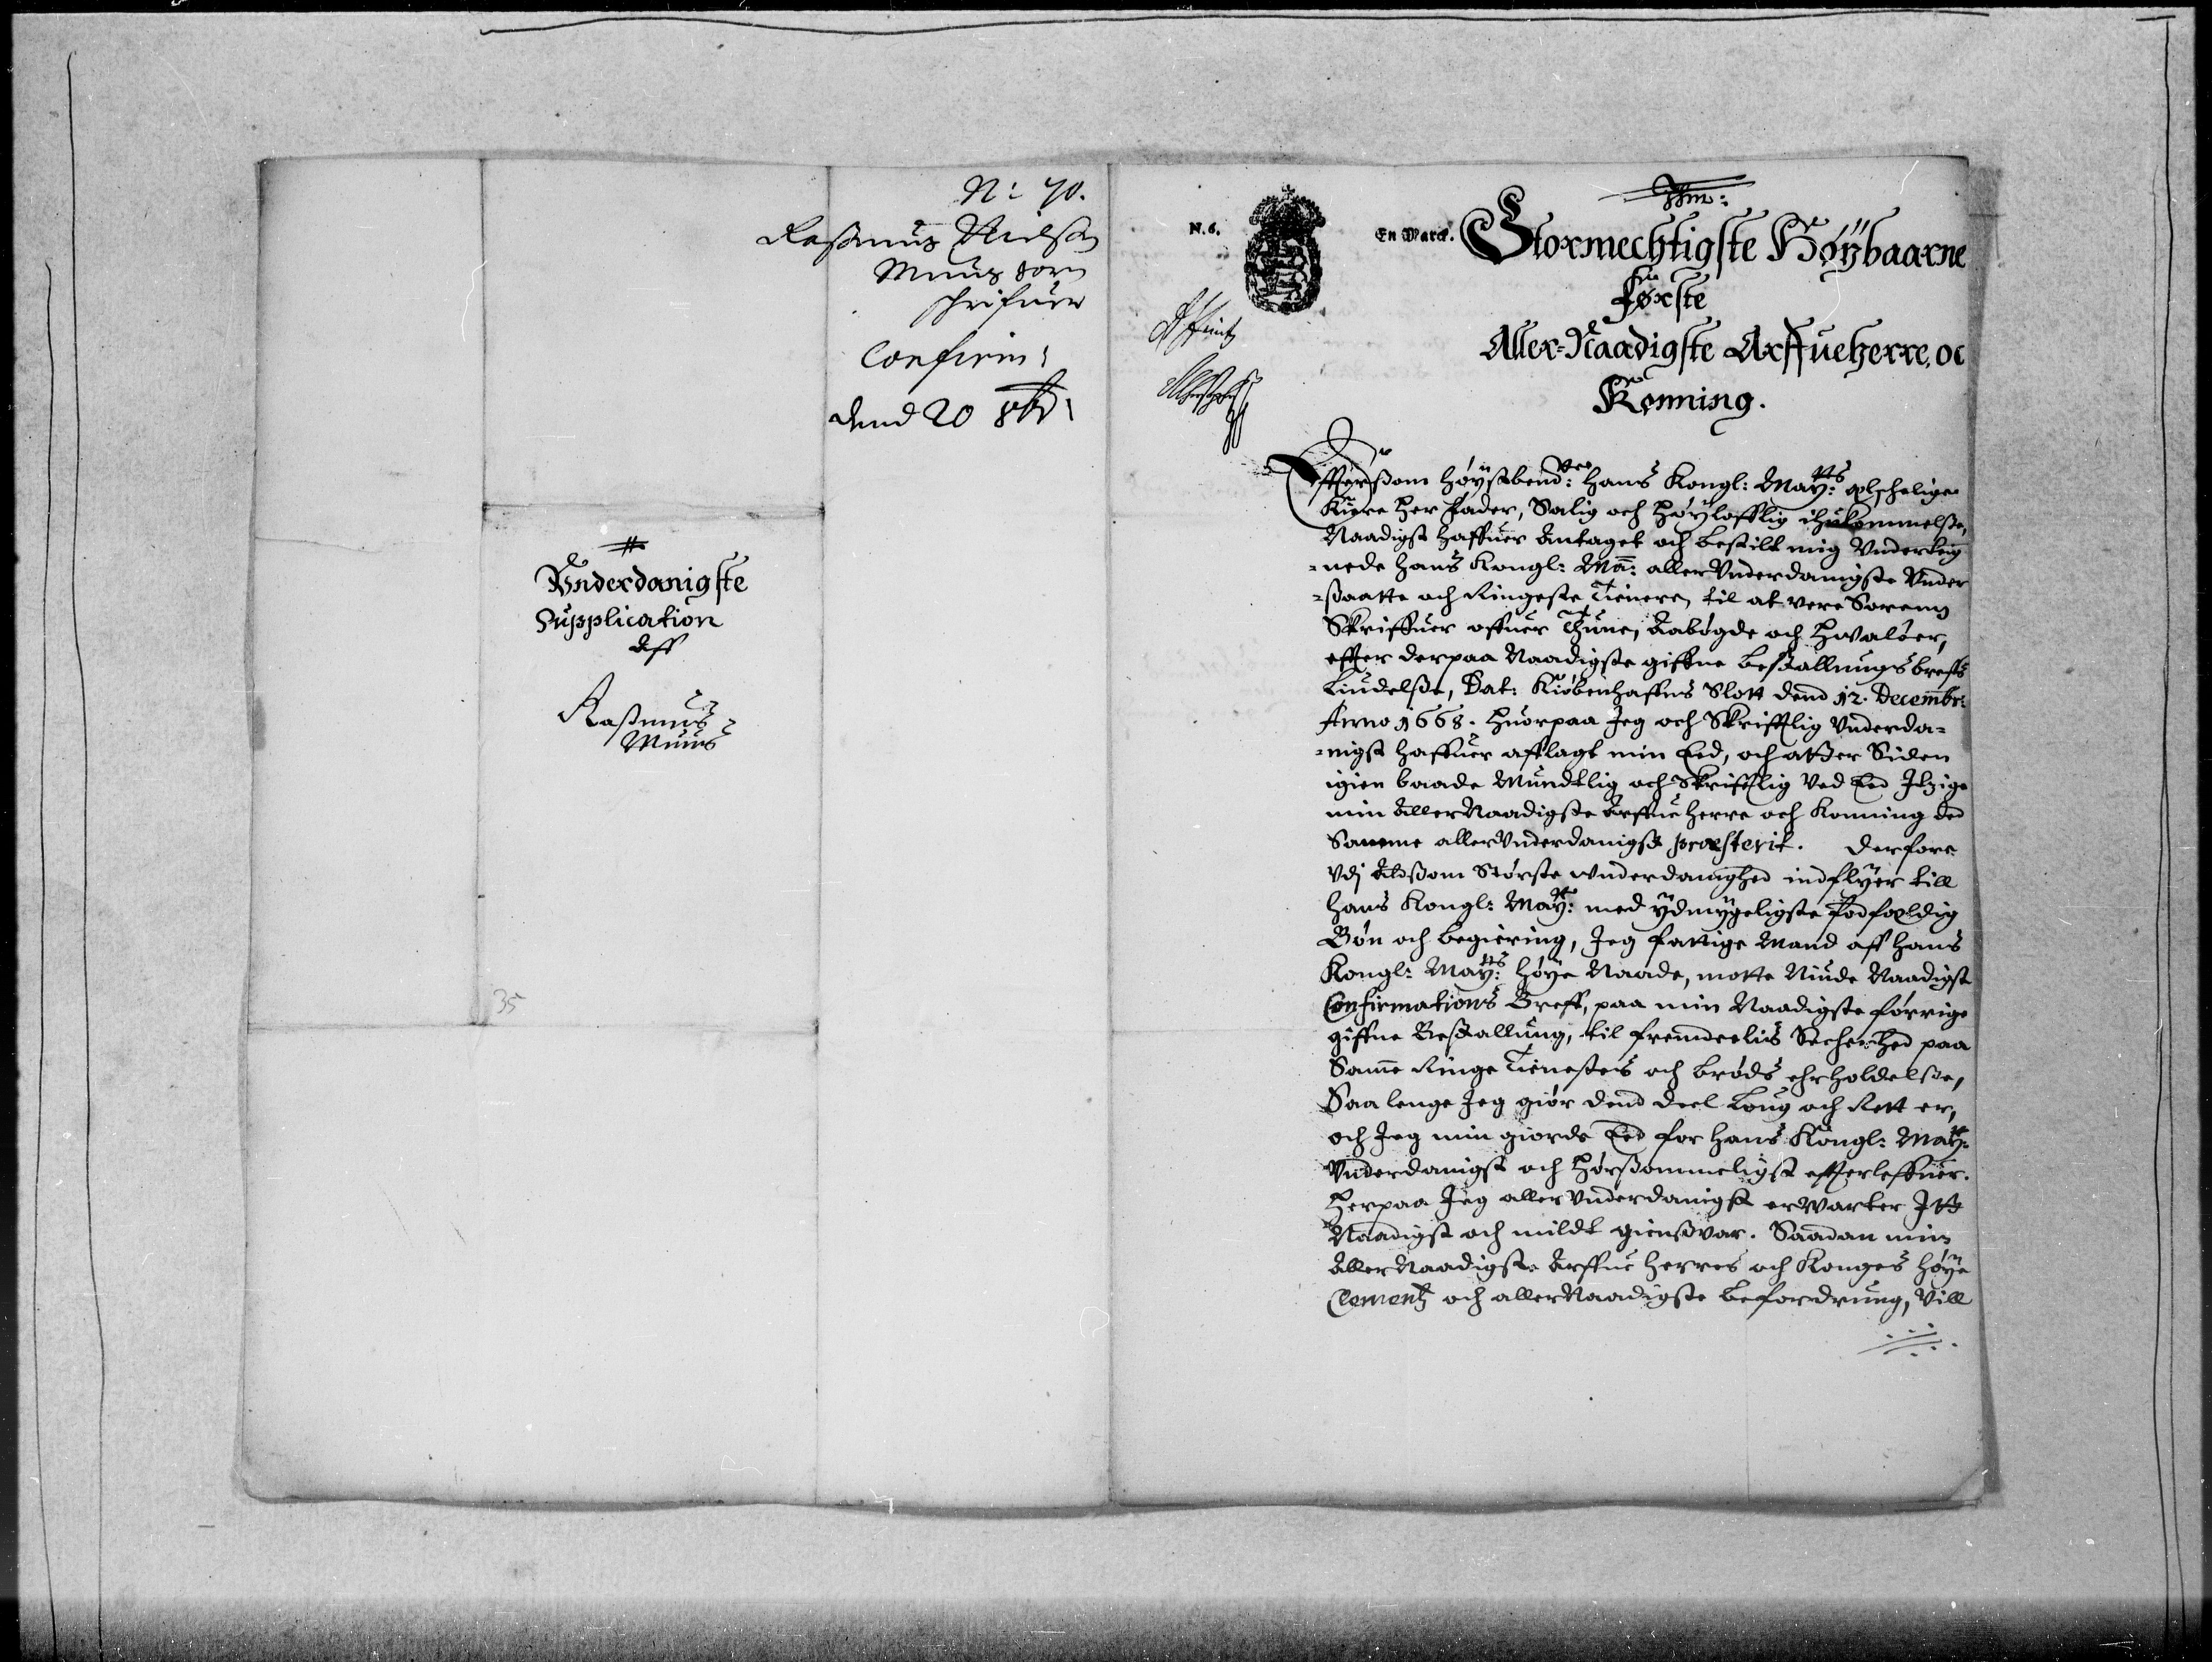 N: 70.
Rasmus Nielsen
Muus Soren
schrifuer
Confirm:
dend 20 8br:
Vnderdanigste
Supplication
Aff
Rasmus
Muus
35
N. 6.
En Marck.
Stormechtigste Høÿbaarne
Første
Aller-Naadigste Arffueherre, oc
Konning.
Effterssom Høystbend: Hans Kongl: Maytts: elschelige
Kiere Her Fader, Salig och Høylofflig ihukommelsse,
Naadigst haffuer Antaget och bestilt mig Underteig-
-nede Hans Kongl: Ma: allerUnderdanigste Under
-ssaatte och Ringeste Tienere, til at vere Soren
Skriffuer offuer Thune, Aabøgde och Hvaløer,
effter derpaa Naadigste giffne bestallungs breffs
Liudelsse, Dat: Kiøbenhaffns Slott dend 12. Decembr:
Anno 1668. Huorpaa Jeg och Skrifftlig Underda-
-nigst haffuer afflagt min Eed, och atter Siden
igien baade Mundtlig och Skrifftlig Ved Eed Itzige
min AllerNaadigste Arffue herre och Konning ded
Samme allerUnderdanigst præsterit. Derfore
Udj Aldssom Største underdanighed indflyer till
Hans Kongl: Maytt: med ydmygeligste fodfaldig
Bøn och begiering, Jeg fattige Mand aff Hans
Kongl: Maytts: høye Naade, motte Niude Naadigst
Confirmations Breff, paa min Naadigste forrige
giffne Bestallung, til fremdeelis Sechehed paa
Samme Ringe Tienestes och brøds ehrholdelsse,
Saa lenge Jeg giør dend deel Loug och Rett er,
och Jeg min giorde Eed for Hans Kongl: Maytt:
Underdanigst och Hørssommeligst effterleffuer.
Herpaa Jeg allerUnderdanigst erwarter Itt
Naadigst och mildt gienssvar. Saadan min
AllerNaadigste Arffue Herres och Konges høye
Clementz och allerNaadigste befordrung, Vill